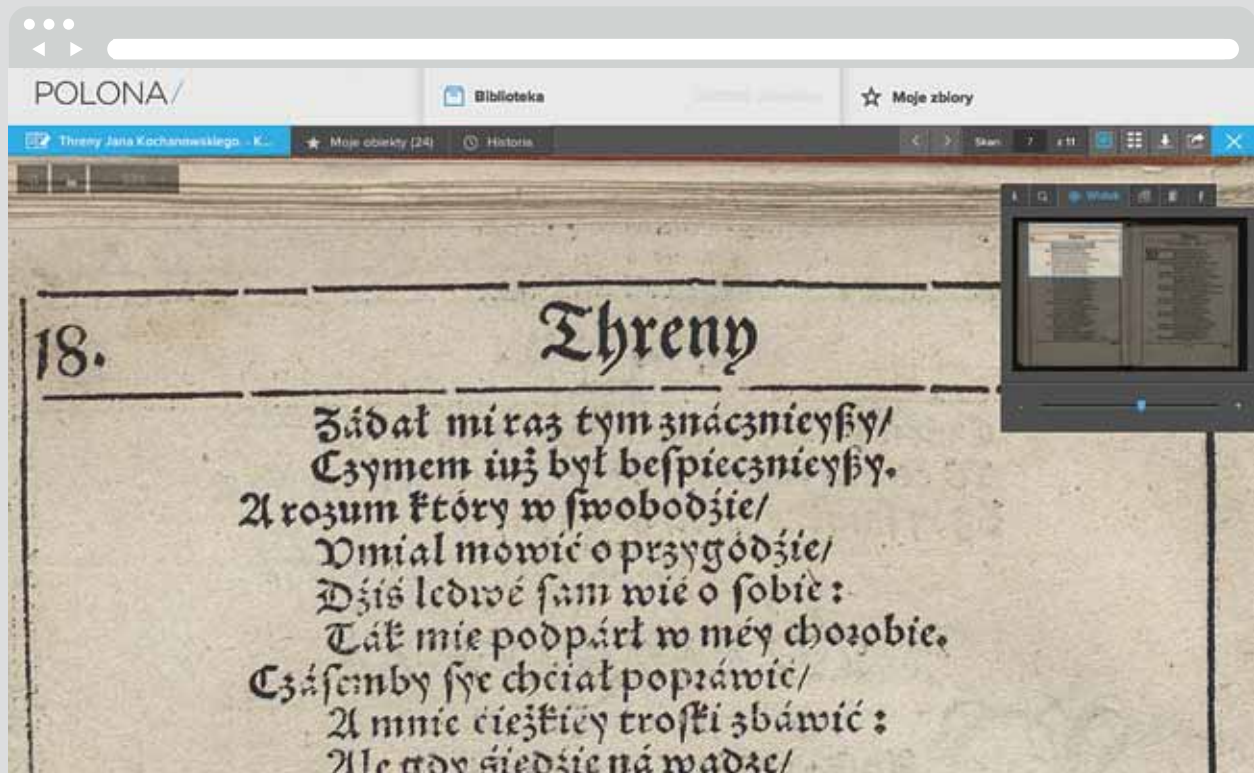 POLONA/
Biblioteka
Moje zbiory
Threny Jana Kochanowskiego. - K...
Moje obiekty (24)
Historia
Skan 7 z 11
Widok
18.
Threny
Zádał mi raz tym znácznieyßy/
Czymem iuż był beſpiecznieyßy.
A rozum który w ſwobodźie/
Vmiał mowić o przygodźie/
Dźiś ledwé ſam wié o ſobie:
Ták mie podpárł w méy chorobie.
Czáſemby ſye chćiał popráwić/
A mnie ćieżkiéy troſki zbáwić:
Ale gdy śiędźie ná wadze/